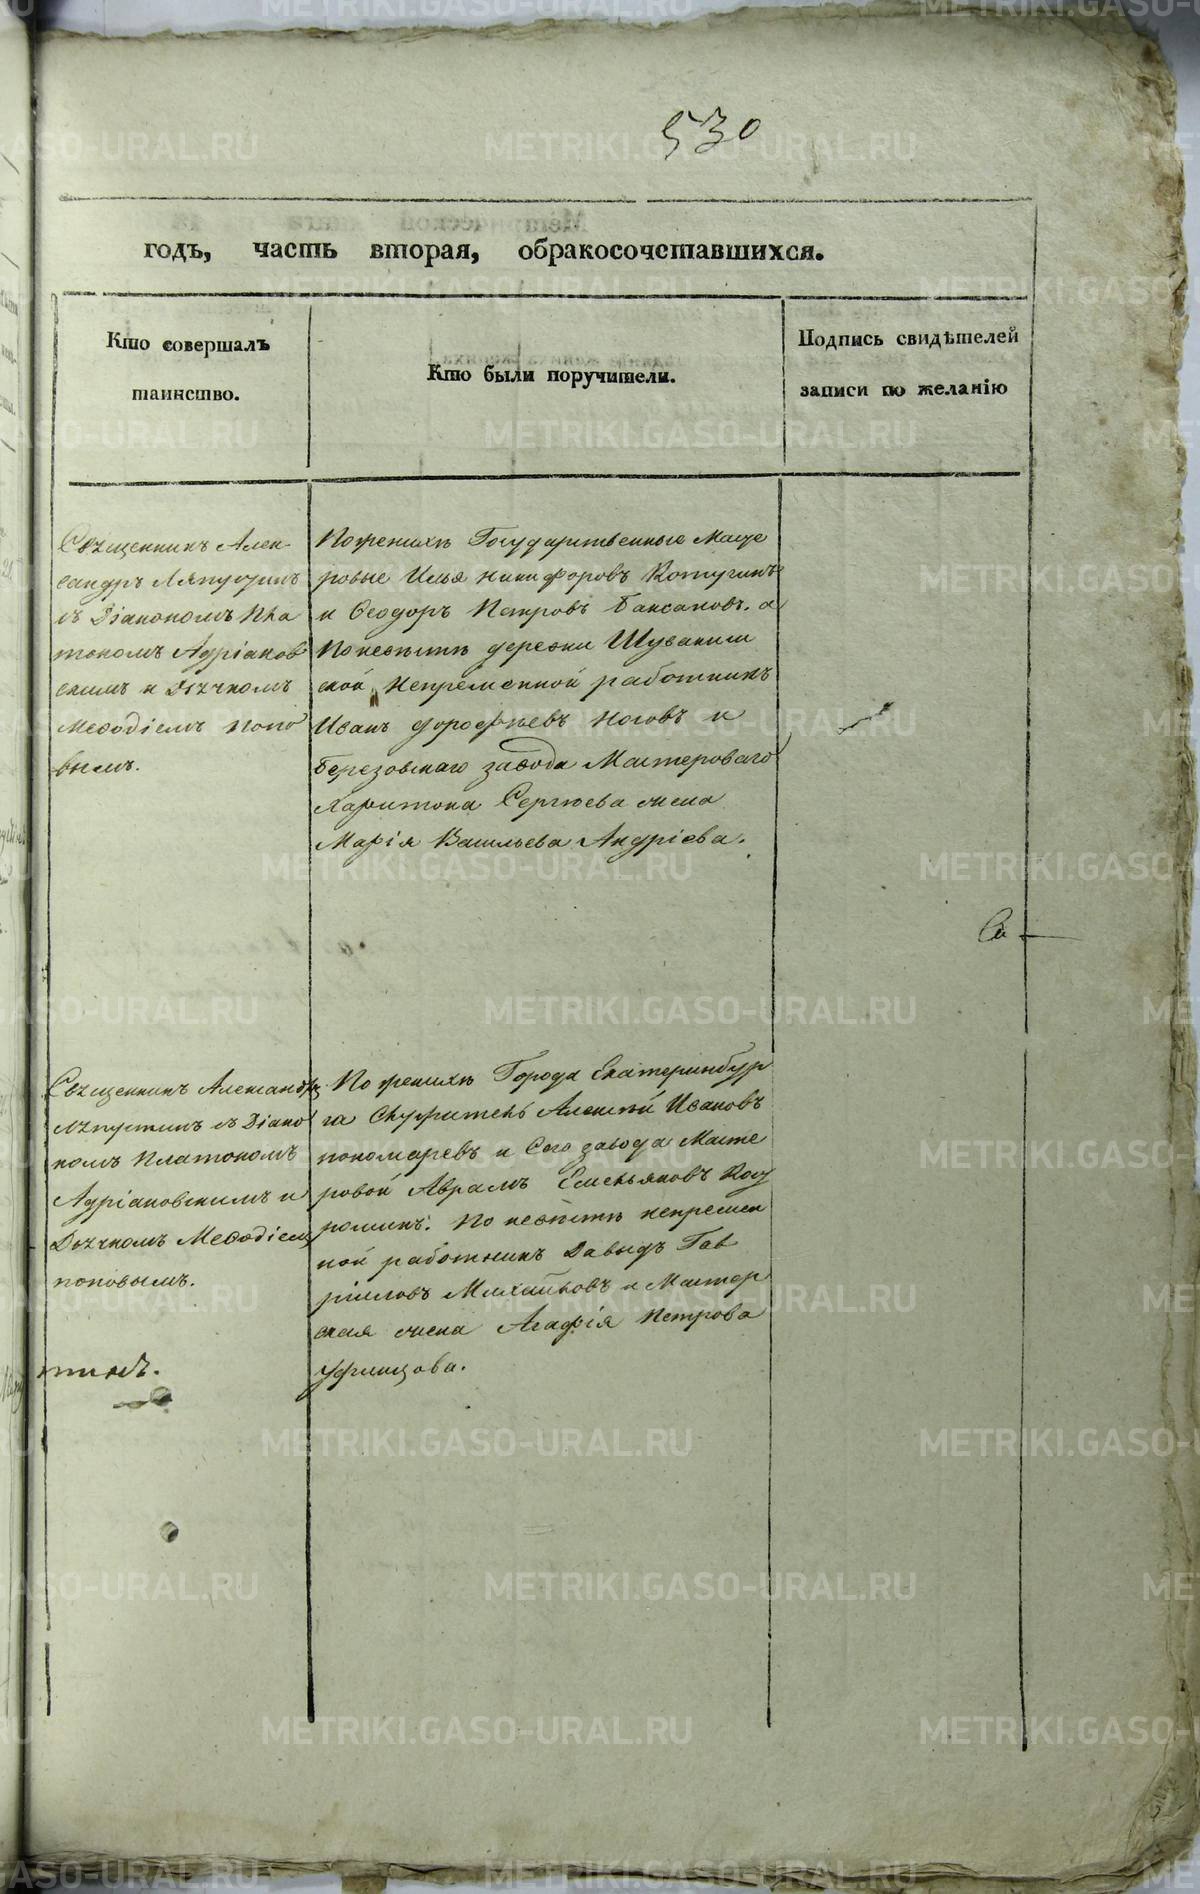 530
годъ, часть вторая, обракосочетавшихся.
Кто совершалъ
таинство.
Кто были поручители.
Подпись свидѣтелей
записи по желанію
Священникъ Алек-
сандръ Ляпустинъ
съ Діакономъ Пла
тономъ Адріанов
скимъ и Дьячкомъ
Меѳодіемъ Попо
вымъ.
По женихѣ Государственные Масте
ровые Илья Никифоровъ Котугинъ
и Ѳеодоръ Петровъ Баксановъ. а
По невѣстѣ деревни Шувакиш
ской Непремѣнной работникъ
Иванъ Дорофѣевъ Ноговъ и
Березовскаго завода Мастероваго
Харитона Сергѣева жена
Марія Васильева Андріева.
Священникъ Александръ
Ляпустинъ съ Діако
номъ Платономъ
Адріановскимъ и
Дьячкомъ Меѳодіемъ
поповымъ.
По женихѣ Города Екатеринбур
га Служитель Алексѣй Ивановъ
пономаревъ и Сего завода Масте
ровой Аврамъ Емельяновъ
По невѣстѣ непремѣн
ной работникъ Давыдъ Гав
риловъ Михайловъ и Мастер
ская жена Агафія Петрова
Уфимцова.
METRIKI.GASO-URAL.RU